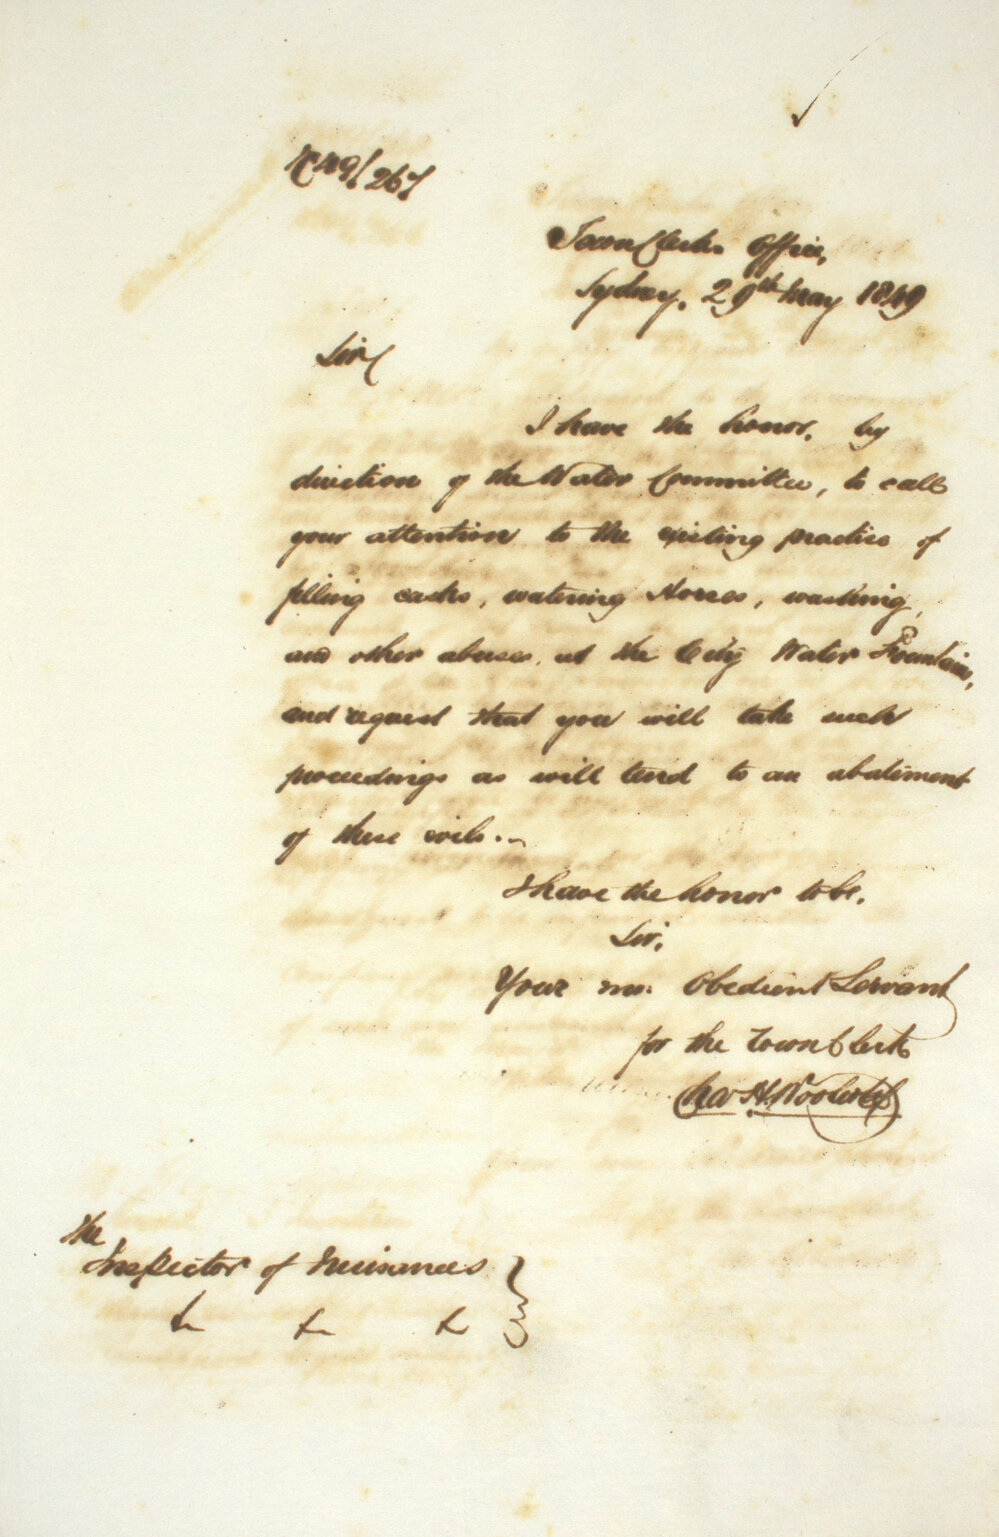 49/267
Town Clerks Office,
Sydney. 29th May 1849
Sir
I have the honor, by
direction of the Water Committee, to call
your attention to the existing practice of
filling casks, watering Horses, washing,
and other abuses, at the City Water Fountains,
and request that you will take such
proceedings as will tend to an abatement
of these evils.
I have the honor to be,
Sir,
Your mo: Obedient Servant
for the Town Clerk
Chas H. Woolcott
The
Inspector of Nuisances
&c &c &c